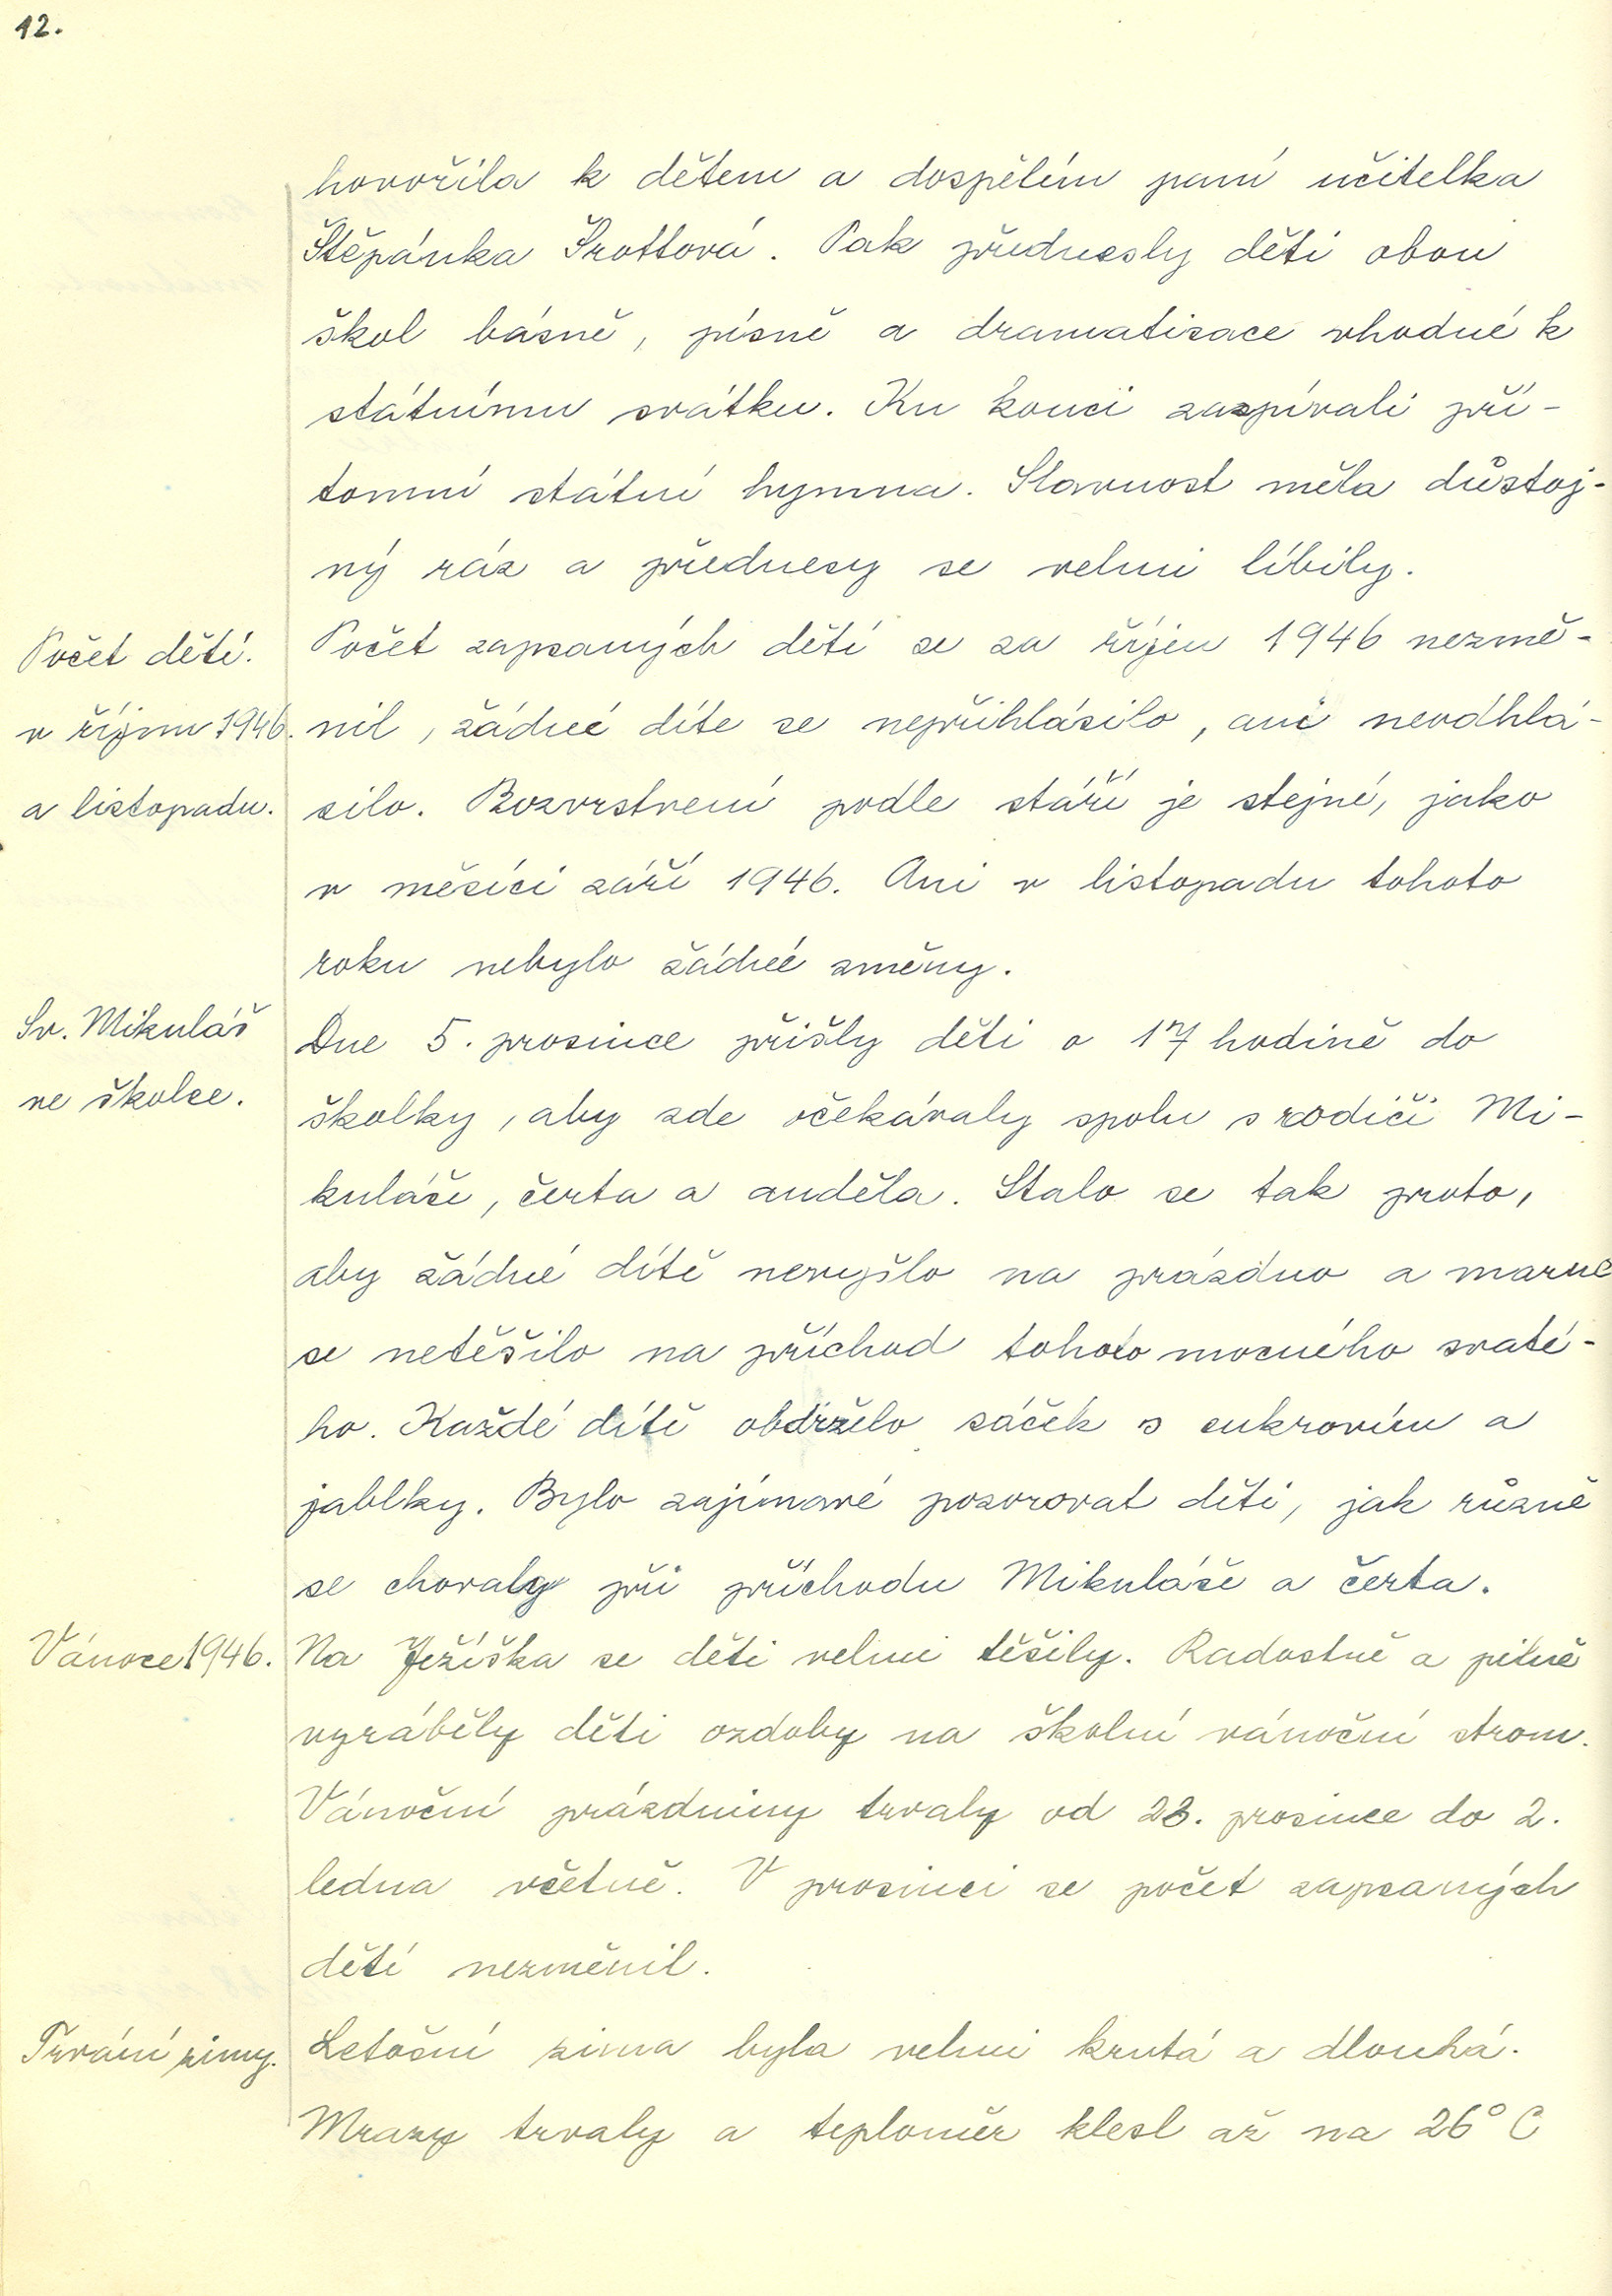 12.
hovořila k dětem a dospělím paní učitelka
Štěpánka Šrottová. Pak přednesly děti obou
škol básně, písně a dramatisace vhodné k
státnímu svátku. Ku konci zazpívali pří-
tomní státní hymna. Slavnost měla důstoj-
ný ráz a přednesy se velmi líbily.
Počet dětí.
v říjnu 1946.
a listopadu.
Počet zapsaných dětí se za říjen 1946 nezmě-
nil, žádné díte se nepřihlásilo, ani neodhlá-
silo. Rozvrstvení podle stáří je stejné, jako
v měsíci září 1946. Ani v listopadu tohoto
roku nebylo žádné změny.
Sv. Mikuláš
ve školce.
Dne 5. prosince přišly děti o 17 hodině do
školky, aby zde očekávaly spolu s rodiči Mi-
kuláše, čerta a anděla. Stalo se tak proto,
aby žádné dítě nevyšlo na prázdno a marně
se netěšilo na příchod tohoto mocného svaté-
ho. Každé dítě obdrželo sáček s cukrovím a
jablky. Bylo zajímavé pozorovat děti, jak různě
se chovaly při příchodu Mikuláše a čerta.
Vánoce 1946.
Na Ježíška se děti velmi těšily. Radostně a pilně
vyráběly děti ozdoby na školní vánoční strom.
Vánoční prázdniny trvaly od 23. prosince do 2.
ledna včetně. V prosinci se počet zapsaných
dětí nezměnil.
Trvání zimy.
Letošní zima byla velmi krutá a dlouhá.
Mrazy trvaly a teploměr klesl až na 26° C